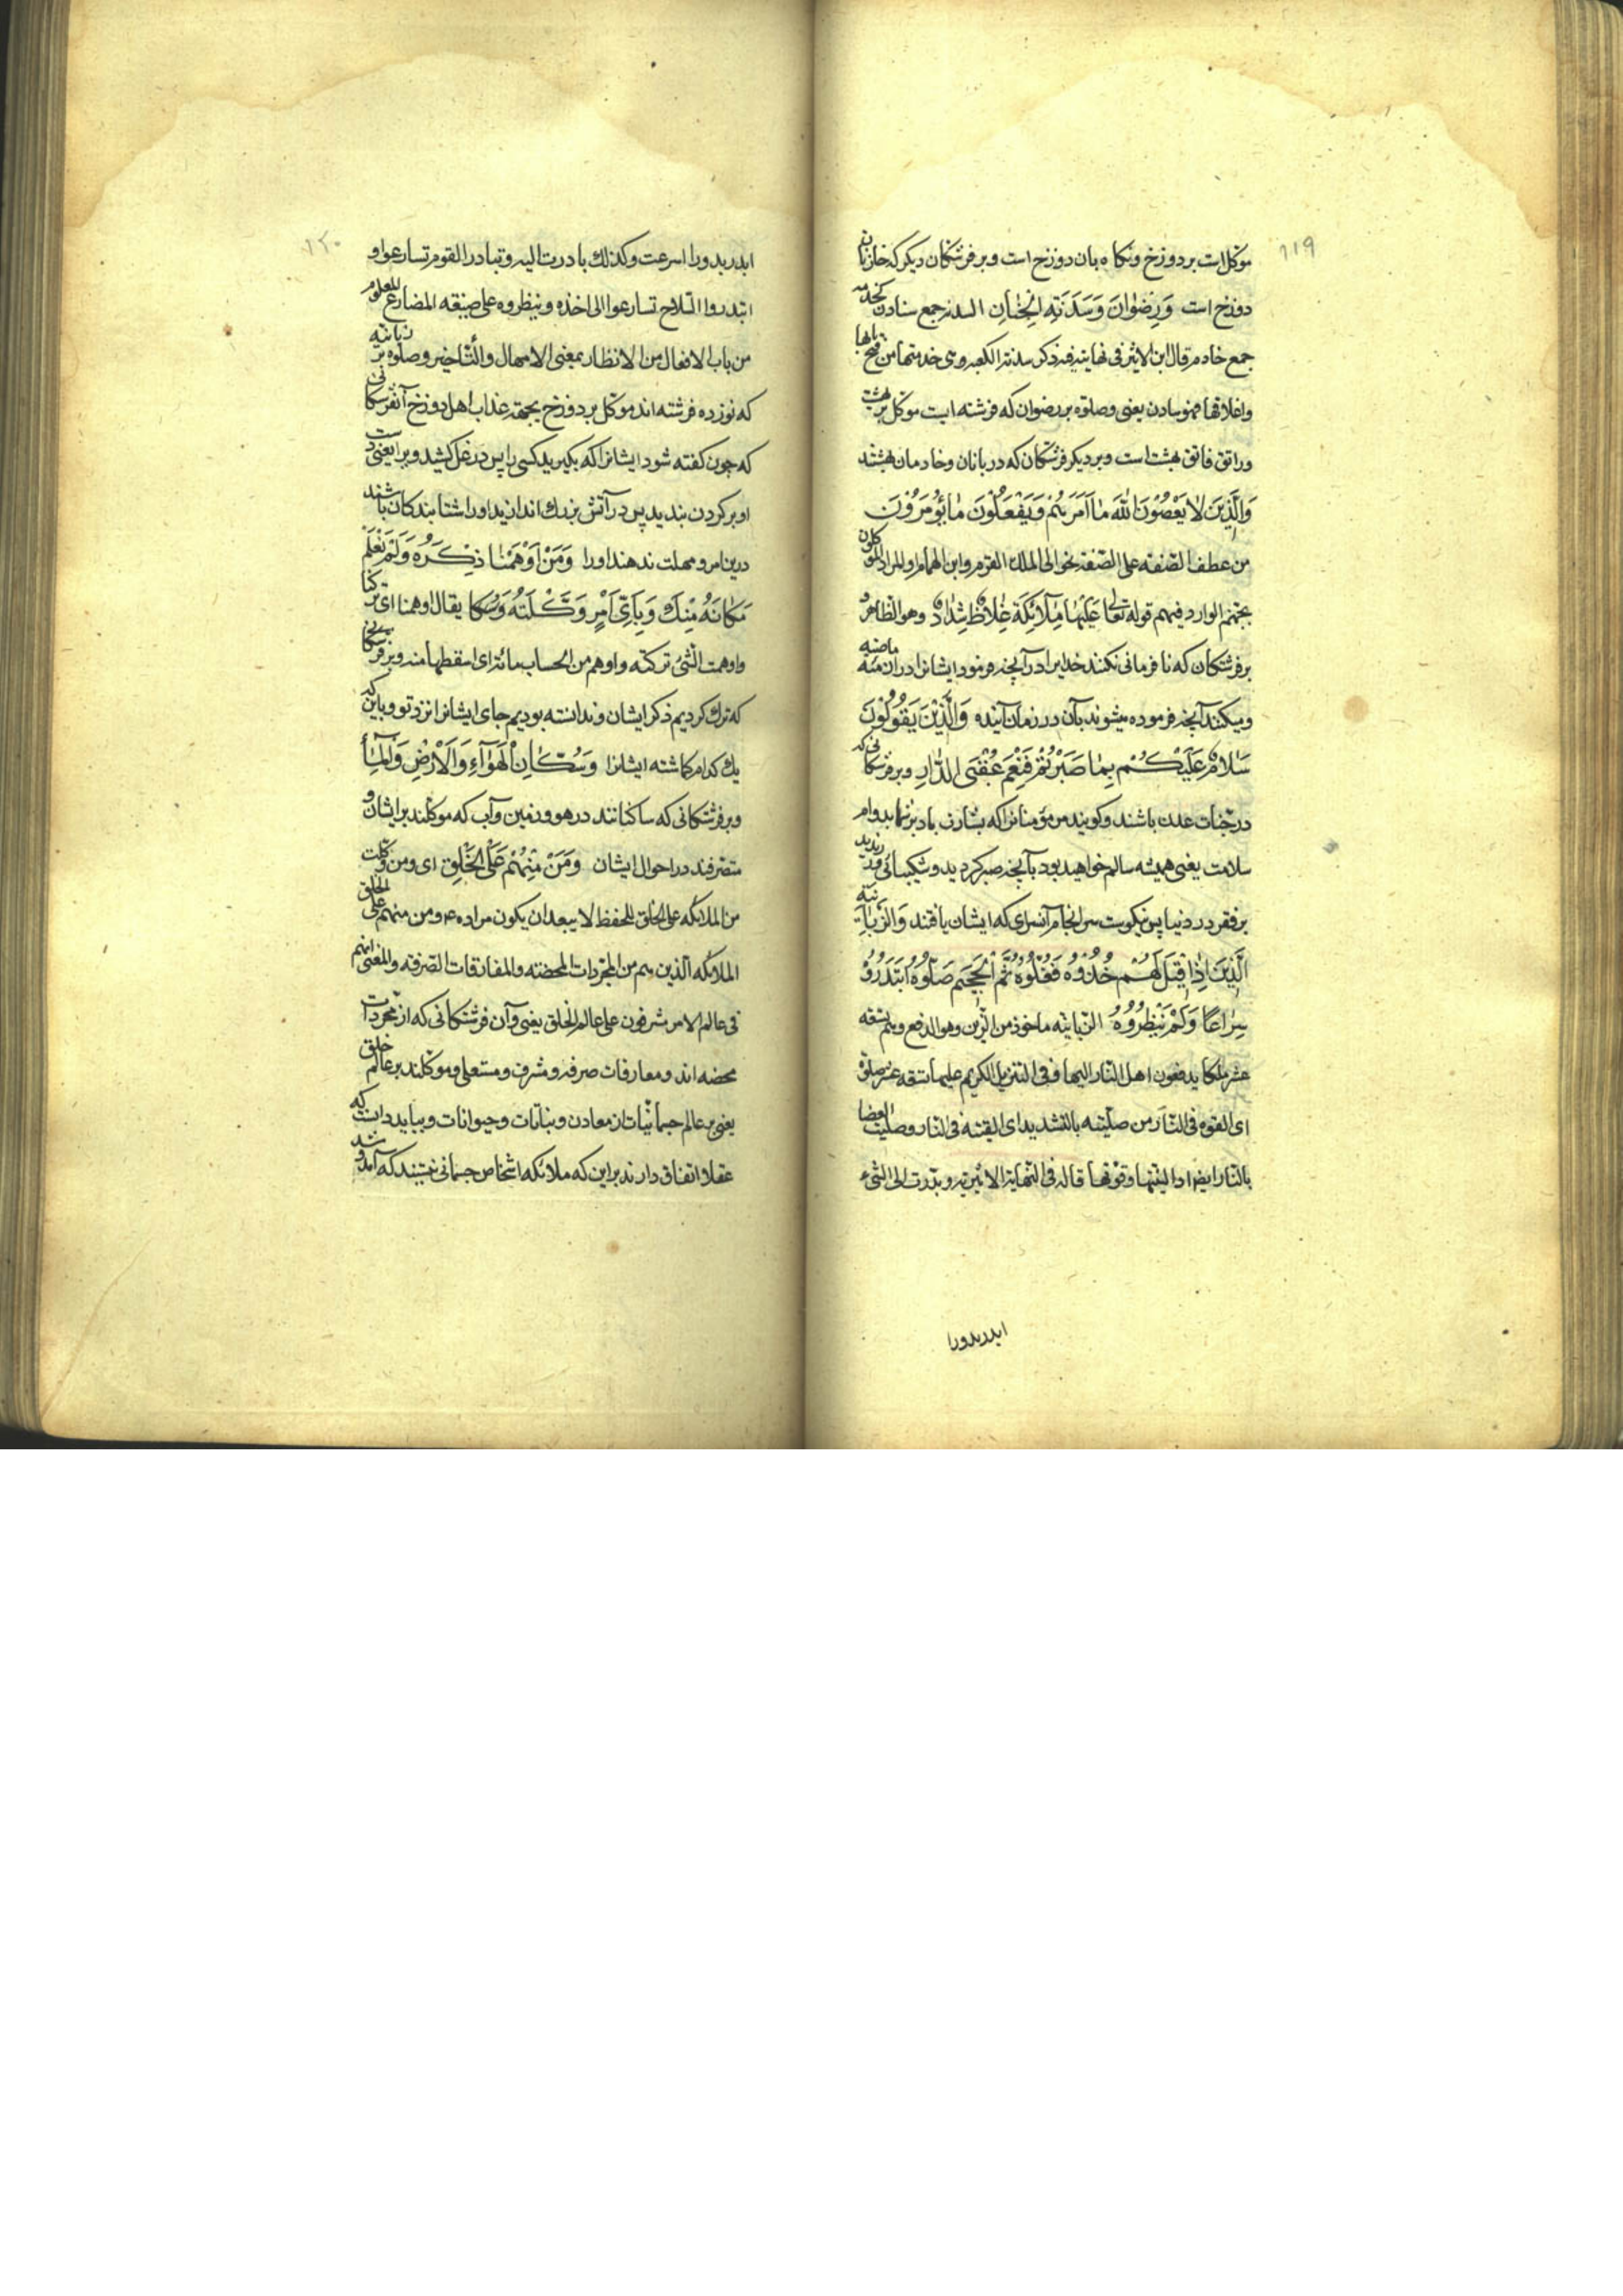 ۱۱۹
موکل است بر دوزخ و نکاه بان دوزخ است و بر فرشتکان دیکر که خازنان
دوزخ است وَرِضْوَانَ وَسَدَنَةِ الْجِنَانِ السدنه جمع سادن کخدمه
جمع خادم قال ابن الاثیر فی نهایته فیه ذکر سدنة الکعبه و هی خدمتها من فتح بابها
واغلاقها فهو سادن یعنی وصلوة بر رضوان که فرشته ایست موکل بر بهشت
وراتق فاتق بهشت است وبر دیکر فرشتکان که دربانان وخادمان بهشتند
وَالَّذِينَ لَا يَعْصُونَ اللَّهَ مَا أَمَرَهُمْ وَيَفْعَلُونَ مَا يُؤْمَرُونَ
من عطف الصّفة علی الصّفة نحو الی الملک القرم وابن الهمام والمراد الموکلون
بجهنم الوارد فیهم قوله تعا عَلَيْهَا مَلَائِكَةٌ غِلَاظٌ شِدَادٌ وهو الظاهر و
بر فرشتکان که نافرمانی نکنند خدایرا در آنچه فرمود ایشانرا در ازمنه ماضیه
ومیکنند آنچه فرموده میشوند بآن در زمان آینده وَالَّذِينَ يَقُولُونَ
سَلَامٌ عَلَيْكُمْ بِمَا صَبَرْتُمْ فَنِعْمَ عُقْبَى الدَّارِ وبر فرشتکانی که
در جنّات عدن باشند وکویند مر مؤمنانرا که بشارت باد بر شما بدوام
سلامت یعنی همیشه سالم خواهید بود بآنچه صبر کردید وشکیبائی ورزیدید
بر فقر در دنیا پس نیکوست سرانجام آنسرای که ایشان یافتند وَالزَّبَانِيَةِ
الَّذِينَ إِذَا قِيلَ لَهُمْ خُذُوهُ فَغُلُّوهُ ثُمَّ الْجَحِيمَ صَلُّوهُ ابْتَدَرُوهُ
سِرَاعًا وَلَمْ يُنْظِرُوهُ الزبانیه ماخوذ من الزّبن وهو الدفع وهم تسعه
عشر ملکا یدفعون اهل النار الیها وفی التنزیل الکریم علیها تسعه عشر صلوّه
ای القوه فی النّار من صلّیته بالتشدید ای القیته فی النار وصلیت العصا
بالنّار ایضا اذا لیّنتها وقوّمتها قاله فی النّهایة الاثیریة وبدرت الی الشیء
ابدر بدورا
۱۲۰
ابدر بدورا اسرعت وکذلک بادرت الیه وتبادر القوم تسارعوا و
ابتدروا السّلاح تسارعوا الی اخذه وینظروه علی صیغه المضارع المعلوم
من باب الافعال من الانظار بمعنی الامهال والتّاخیر وصلوة بر زبانیه
که نوزده فرشته اند موکل بر دوزخ بجهة عذاب اهل دوزخ آنفرشتکانی
که چون کفته شود ایشانرا که بکیرید کسی را پس در غل کشید ویرا یعنی دست
او بر کردن بندید پس در آتش بزرک اندازید اورا شتابندکان باشند
درین امر و مهلت ندهند اورا وَمَنْ أَوْهَمْنَا ذِكْرَهُ وَلَمْ نَعْلَمْ
مَكَانَهُ مِنْكَ وَبِأَيِّ أَمْرٍ وَكَّلْتَهُ وَسُكَّا یقال اوهمنا ای ترکنا
واوهمت الشّیء ترکته واوهم من الحساب مائة ای اسقطها منه وبر فرشتکانی
که ترک کردیم ذکر ایشان وندانسته بودیم جای ایشانرا نزد تو وباین که
یک کدام کماشته ایشانرا وَسُكَّانِ الْهَوَاءِ وَالْأَرْضِ وَالْمَاءِ
وبر فرشتکانی که ساکنانند در هوا وزمین وآب که موکلند بر ایشان و
متصرفند در احوال ایشان وَمَنْ مِنْهُمْ عَلَى الْخَلْقِ ای ومن وکلت
من الملائکه علی الخلق للحفظ لا یبعد ان یکون مراده ع ومن منهم علی الخلق
الملائکه الّذین هم من المجرّدات المحضته والمفارقات الصّرفه والمعنی انهم
فی عالم الامر مشرفون علی عالم الخلق یعنی وآن فرشتکانی که از مجرّدات
محضه اند ومفارقات صرفه ومشرف ومستعلی وموکلند بر عالم خلق
یعنی بر عالم جسمانیّات از معادن ونباتات وحیوانات وبباید دانست که
عقلا اتفاق دارند براین که ملائکه اشخاص جسمانی نیستند که آمد و شد